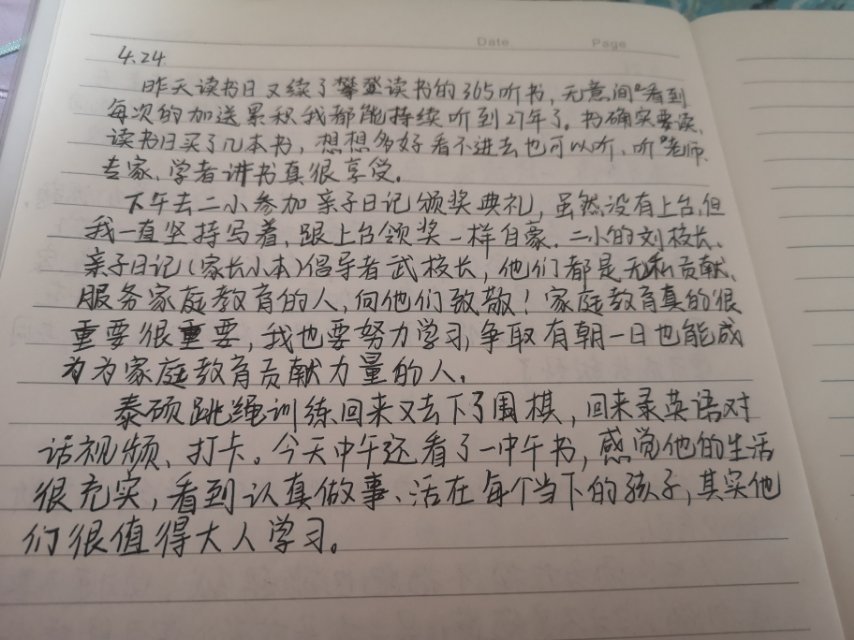 Date Page
4.24
昨天读书日又续了樊登读书的365听书,无意间看到
每次的加送累积我都能持续听到27年了。书确实要读、
读书日买了几本书,想想多好看不进去也可以听、听老师、
专家、学者讲书真很享受。
下午去二小参加亲子日记颁奖典礼,虽然没有上台,但
我一直坚持写着,跟上台领奖一样自豪。二小的刘校长、
亲子日记(家长小本)倡导者武校长,他们都是无私贡献、
服务家庭教育的人,向他们致敬!家庭教育真的很
重要很重要,我也要努力学习,争取有朝一日也能成
为为家庭教育贡献力量的人。
泰硕跳绳训练回来又去下了围棋,回来录英语对
话视频、打卡。今天中午还看了一中午书,感觉他的生活
很充实,看到认真做事、活在每个当下的孩子,其实他
们很值得大人学习。